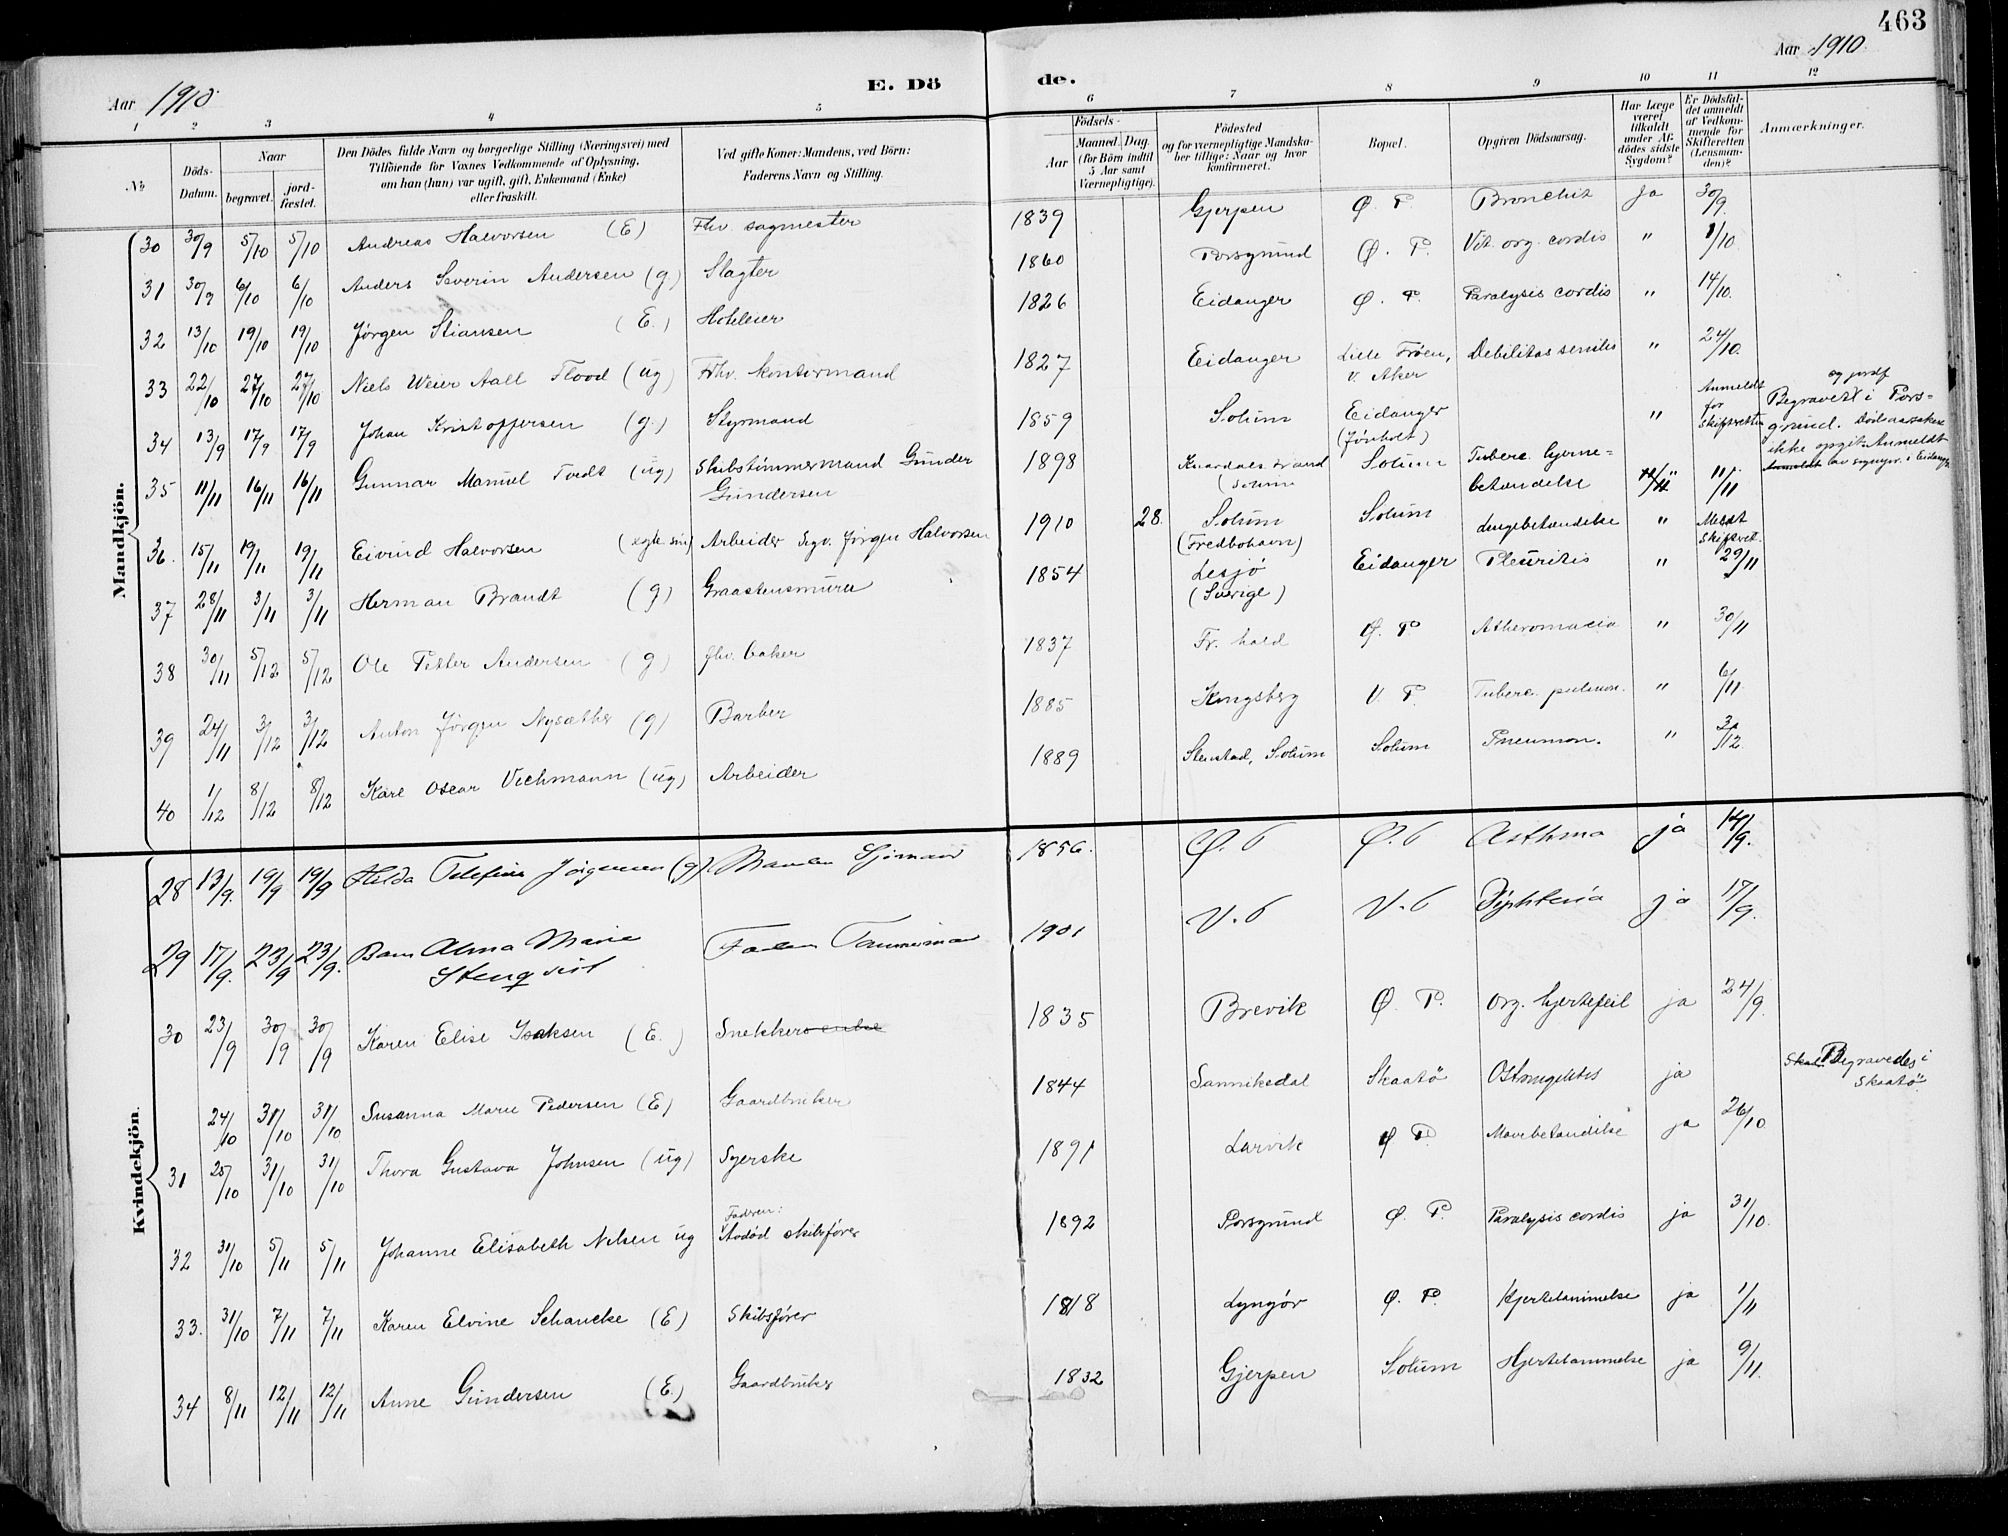 463
Aar 1910.
E. Dö
de.
Aar 1910.
1 2 3 4 5 6 7 8 9 10 11 12
No
Döds-Datum.
Naar
begravet.
jord-fæstet.
Den Dödes fulde Navn og borgerlige Stilling (Næringsvei) med
Tilföiende for Voxnes Vedkommende af Oplysning,
om han (hun) var ugift, gift, Enkemand (Enke)
eller fraskilt.
Ved gifte Koner: Mandens, ved Börn:
Faderens Navn og Stilling.
Födsels-
Aar
Maaned. Dag.
(for Börn indtil
5 Aar samt
Værnepligtige).
Födested
og for værnepligtige Mandska-
ber tillige: Naar og hvor
konfirmeret.
Bopæl.
Opgiven Dödsaarsag.
Har Læge
været
tilkaldt
under Af-
dödes sidste
Sygdom?
Er Dödsfal-
det anmeldt
af Vedkom-
mende for
Skifteretten
(Lensman-
den)?
Anmærkninger.
Mandkjön.
30 30/9 5/10 5/10 Andreas Halvorsen (E) Fhv. sagmester 1839 Gjerpen Ø. P Bronchit Ja 30/9.
31 30/9 6/10 6/10 Anders Severin Andersen (g) Slagter 1860 Porsgrund Ø. P. Vit. org. cordis " 1/10.
32 13/10 19/10 19/10 Jørgen Stiansen (E.) Hoteleier 1826 Eidanger Ø. P. Paralysis cordis " 14/10.
33 22/10 27/10 27/10 Niels Weier Aall Flood (ug) Fhv. kontormand 1827 Eidanger Lille Frøen, v. Aker Debilitas senilis " 24/10.
34 13/9 17/9 17/9 Johan Kristoffersen (g.) Styrmand 1859 Solum Eidanger (Jønholt) " Anmeldt for Skifteretten
og jordf
Begravet i Pors-
grund. Dødsaarsaken
ikke opgit. Anmeldt
35 11/11 16/11 16/11 Gunnar Manuel Tvedt (ug) Skibstømmermand Gunder Gundersen 1898 Knardals strand Solum Solum Tuberc. hjerne-betændelse " 11/11
36. 15/11 19/11 19/11 Eivind Halvorsen (egte søn) Arbeider Jørgen Halvorsen 1910 28. Solum (Fredbohavn) Solum Lungebetændelse " Meldt Skifteret.
37 28/11 3/11 3/11 Herman Brandt (g) Graastensmurer 1854 Lesjö (Sverige) Eidanger Pleuritis " 29/11
38 30/11 5/12 5/12 Ole Petter Andersen (g) fhv. baker 1837 Fr. hald Ø. P Atheromacia " 30/11
39 24/11 3/12 3/12 Anton Jørgen Nysæther (g) Barber 1885 Kongsberg V. P. Tuberc. pulmon. " 6/11.
40 1/12 8/12 8/12 Karl Oscar Vichmann (ug) Arbeider 1889 Stenstad, Solum Solum Pneumon. " 3/12
Kvindekjön.
28 13/9. 19/9 19/9 Hilda Telefine Jörgensen (g) Manden Sjömand 1856. Ø. P Ø. P Asthma ja 14/9.
29 17/9. 23/9 23/9. Barn Alma Marie Stenqvist Faderen Tømmermand 1901 V. P V. P Diphteria ja 17/9.
30 23/9 30/9 30/9 Karen Elise Isaksen (E.) Snekkers enke 1835 Brevik Ø P. Org. hjertefeil ja 24/9.
24/10 31/10 31/10 Susanna Marie Pedersen (E) Gaardbruker 1844 Sannikedal Skaatö ja Skal Begravedes i Skaatö
31 25/10 31/10 31/10 Thora Gustava Johnsen (ug) Syerske 1891 Larvik Ø P Mavebetændelse ja 26/10
32 31/10 5/11 5/11 Johanne Elisabeth Nilsen ug Faderen: Avdød skibsfører 1892 Porsgrund Ø. P. Paralysis cordis ja 31/10.
33. 31/10 7/11 7/11 Karen Elvine Schancke (E) Skibsfører 1818 Lyngör Ø. P. Hjertelammelse ja 1/11
34 8/11 12/11 12/11 Anne Gundersen (E.) Gaardbruker 1832 Gjerpen Solum Hjertelammelse ja 9/11.